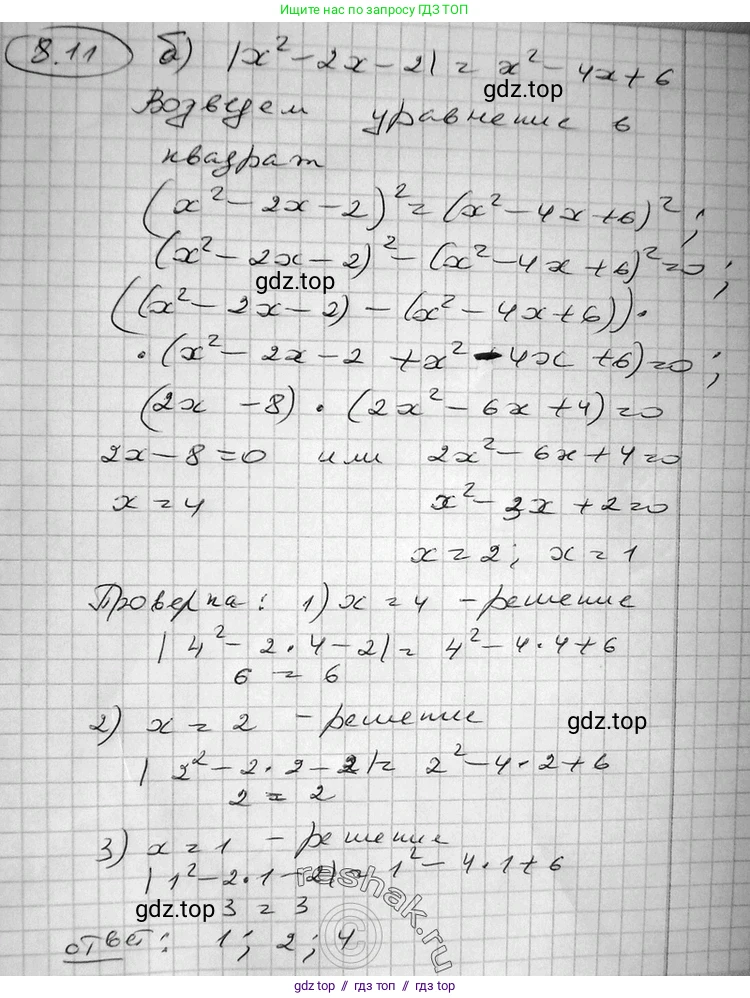 Ищи нас по запросу ГДЗ ТОП
8.11 б) |x² - 2x - 2| = x² - 4x + 6
gdz.top
Возведем уравнение в
квадрат
(x² - 2x - 2)² = (x² - 4x + 6)²;
(x² - 2x - 2)² - (x² - 4x + 6)² = 0;
gdz.top
((x² - 2x - 2) - (x² - 4x + 6)) ·
· (x² - 2x - 2 + x² - 4x + 6) = 0;
(2x - 8) · (2x² - 6x + 4) = 0
2x - 8 = 0 или 2x² - 6x + 4 = 0
x = 4 x² - 3x + 2 = 0
x = 2; x = 1
Проверка: 1) x = 4 - решение
|4² - 2·4 - 2| = 4² - 4·4 + 6
6 = 6
2) x = 2 - решение
gdz.top
|2² - 2·2 - 2| = 2² - 4·2 + 6
2 = 2
3) x = 1 - решение
|1² - 2·1 - 2| = 1² - 4·1 + 6
reshak.ru
gdz.top
3 = 3
ответ: 1; 2; 4
gdz.top // гдз.топ // gdz.top